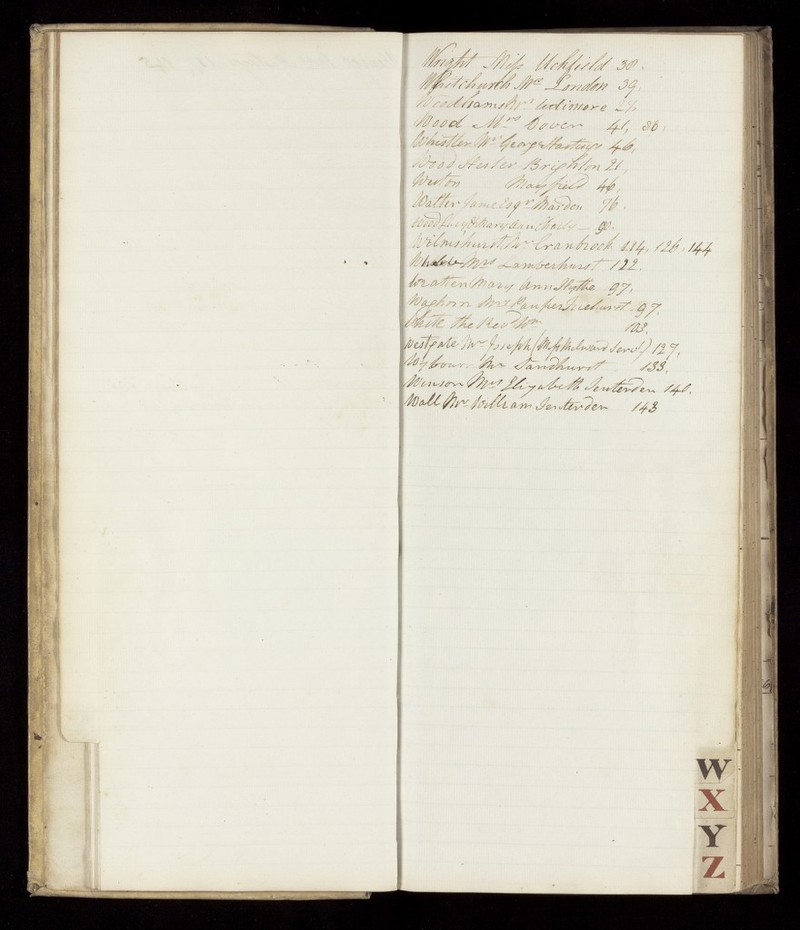 Wright Miss Uckfield 38.
Whitchurch Mrs London 39.
Woodhams Mrs Udimore 29.
Wood Mrs Dover 41, 80.
Whistler Mr George Hastings 46,
Wood Hester Brighton 21,
Weston Mayfield 46,
Walter James Esqr. Marden 76.
Wood Lucy & Mary Ann 90.
Wilmshurst Mr Cranbrook 114, 126. 144
Mrs Lamberhurst 122.
Wratten Mary Ann Hythe 97,
Waghorn Mrs Pauper Ticehurst 97.
White the Revd Wm. 103.
Westgate Mr Joseph (Miss Milward Servt) 127,
Wybourn Mr Sandhurst 133,
Winson Mrs Elizabeth Tenterden 140.
Wall Mr William Tenterden 143
W
X
Y
Z